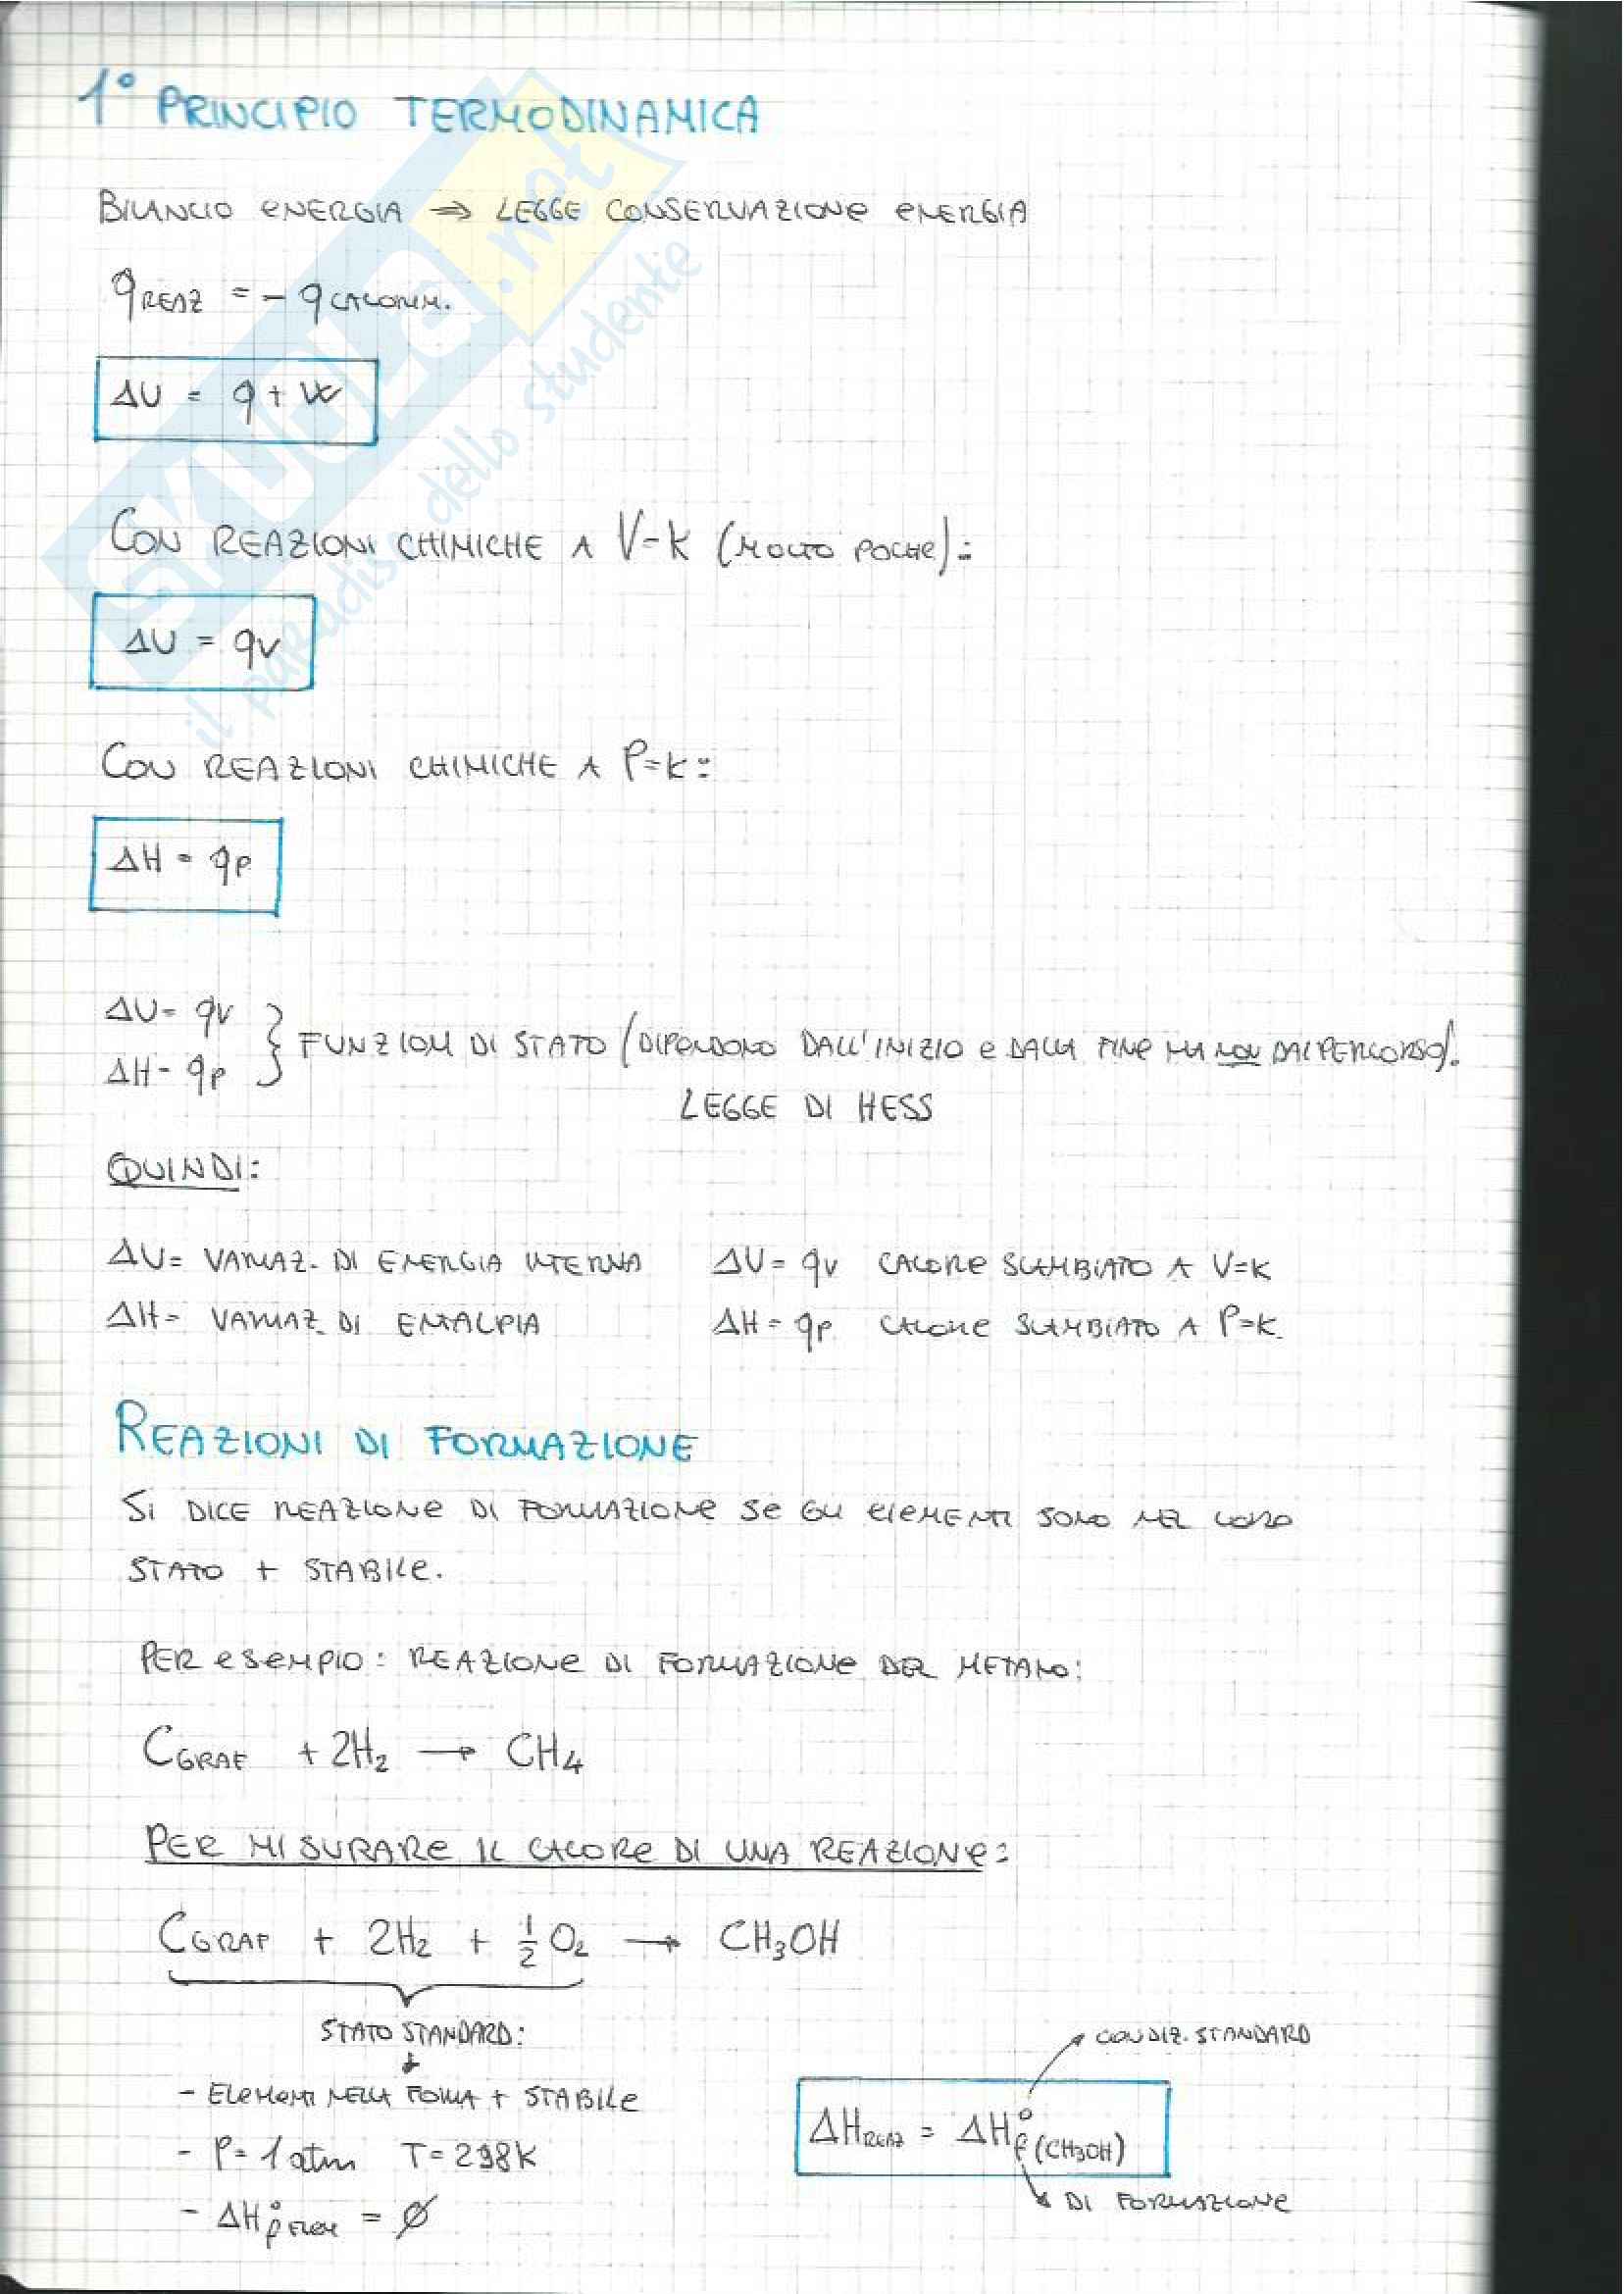 1° PRINCIPIO TERMODINAMICA
BILANCIO ENERGIA ⇒ LEGGE CONSERVAZIONE ENERGIA
qREAZ = - qCALORIM.
ΔU = q + W
CON REAZIONI CHIMICHE A V=K (MOLTO POCHE):
ΔU = qv
CON REAZIONI CHIMICHE A P=K:
ΔH = qp
ΔU = qv
ΔH = qp } FUNZIONI DI STATO (DIPENDONO DALL'INIZIO E DALLA FINE MA NON DAL PERCORSO).
LEGGE DI HESS
QUINDI:
ΔU = VARIAZ. DI ENERGIA INTERNA ΔU = qv CALORE SCAMBIATO A V=K
ΔH = VARIAZ. DI ENTALPIA ΔH = qp CALORE SCAMBIATO A P=K.
REAZIONI DI FORMAZIONE
SI DICE REAZIONE DI FORMAZIONE SE GLI ELEMENTI SONO NEL LORO
STATO + STABILE.
PER ESEMPIO: REAZIONE DI FORMAZIONE DEL METANO:
CGRAF + 2H₂ → CH₄
PER MISURARE IL CALORE DI UNA REAZIONE:
CGRAF + 2H₂ + ½ O₂ → CH₃OH
STATO STANDARD:
- ELEMENTI NELLA FORMA + STABILE
- P = 1 atm T = 298K
- ΔH°f ELEM = ∅
CONDIZ. STANDARD
ΔHREAZ = ΔH°f (CH₃OH)
DI FORMAZIONE
SKUOLA.net
il paradiso dello studente